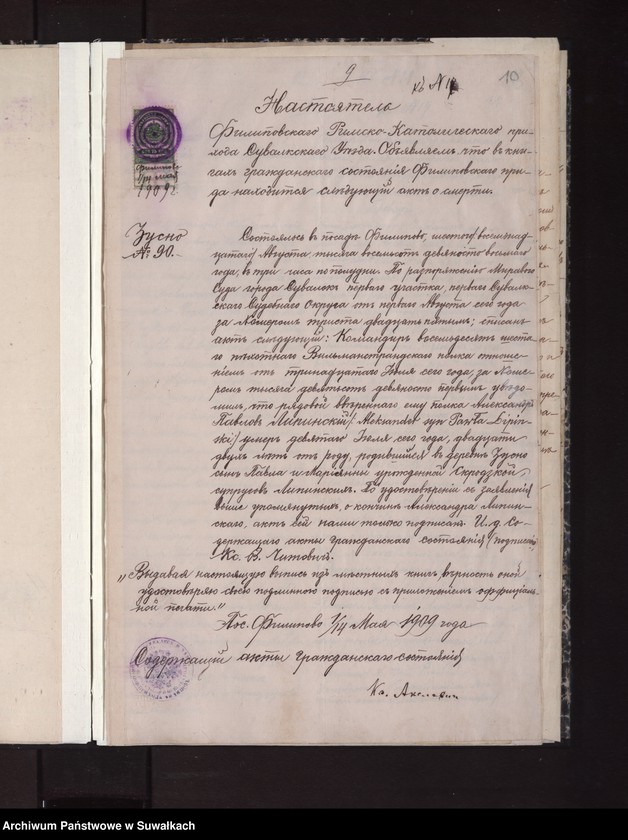 9
къ N
10
Настоятель
Филиповскаго Римско-Католическаго при-
хода Сувалкскаго Уѣзда. Объявляемъ что въ кни-
гахъ гражданскаго состоянія Филиповскаго при-
да находится слѣдующій актъ о смерти.
1909 г
Зусно
№ 90.
Состоялось въ посадѣ Филипово, шестого/восемнад-
цатаго/ Августа тысяча восемьсотъ девяносто восьмаго
года, въ три часа пополудни. По распоряженію Мироваго
Суда города Сувалокъ перваго участка, перваго Сувалк-
скаго Судебнаго Округа отъ перваго Августа сего года
за Номеромъ триста двадцать пятымъ; списанъ
актъ слѣдующій: Командиръ восемьдесятъ шеста-
го пѣхотнаго Вильманстрандскаго полка отноше-
ніемъ отъ тринадцатаго Іюля сего года, за Номе-
ромъ тысяча девятьсотъ девяносто первымъ увѣдо-
милъ, что рядовой ввѣреннаго ему полка Александръ
Павловъ Липинскій /Aleksander syn Pawła Lipin-
ski/ умеръ девятаго Іюля сего года, двадцати
двухъ лѣтъ отъ роду, родившійся въ деревнѣ Зусно
сынъ Павла и Маріанны урожденной Скродзкой,
супруговъ Липинскихъ. По удостовѣреніи съ заявленія
выше упомянутымъ, о кончинѣ Александра Липин-
скаго, актъ сей нами только подписанъ. И. д. Со-
держащаго акты гражданскаго состоянія /подписалъ/
Кс. В. Читовичъ.
„Выдавая настоящую выпись изъ мѣстныхъ книгъ, вѣрность оной
удостовѣряю своею подлинною подписью съ приложеніемъ оффиціаль-
ной печати."
Пос. Филипово 1/14 Мая 1909 года
Содержащій акты гражданскаго состоянія
Кс.
Archiwum Państwowe w Suwałkach